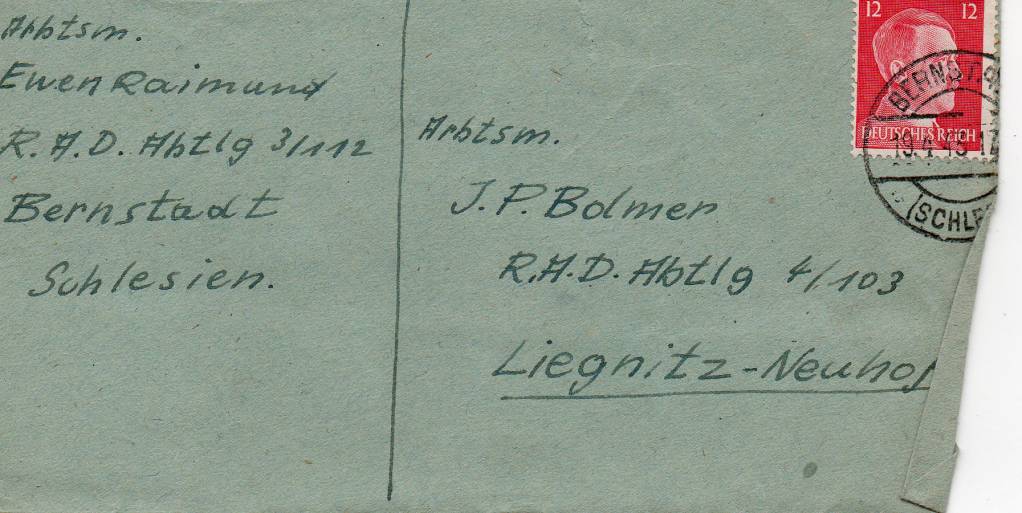 Arbtsm.
Ewen Raimund
R.A.D. Abtlg 3/112
Bernstadt
Schlesien.
Arbtsm.
J.P. Bolmer
R.A.D. Abtlg 4/103
Liegnitz-Neuhof
12 12
DEUTSCHES REICH
BERNSTA
19.4.43.17
(SCHLE